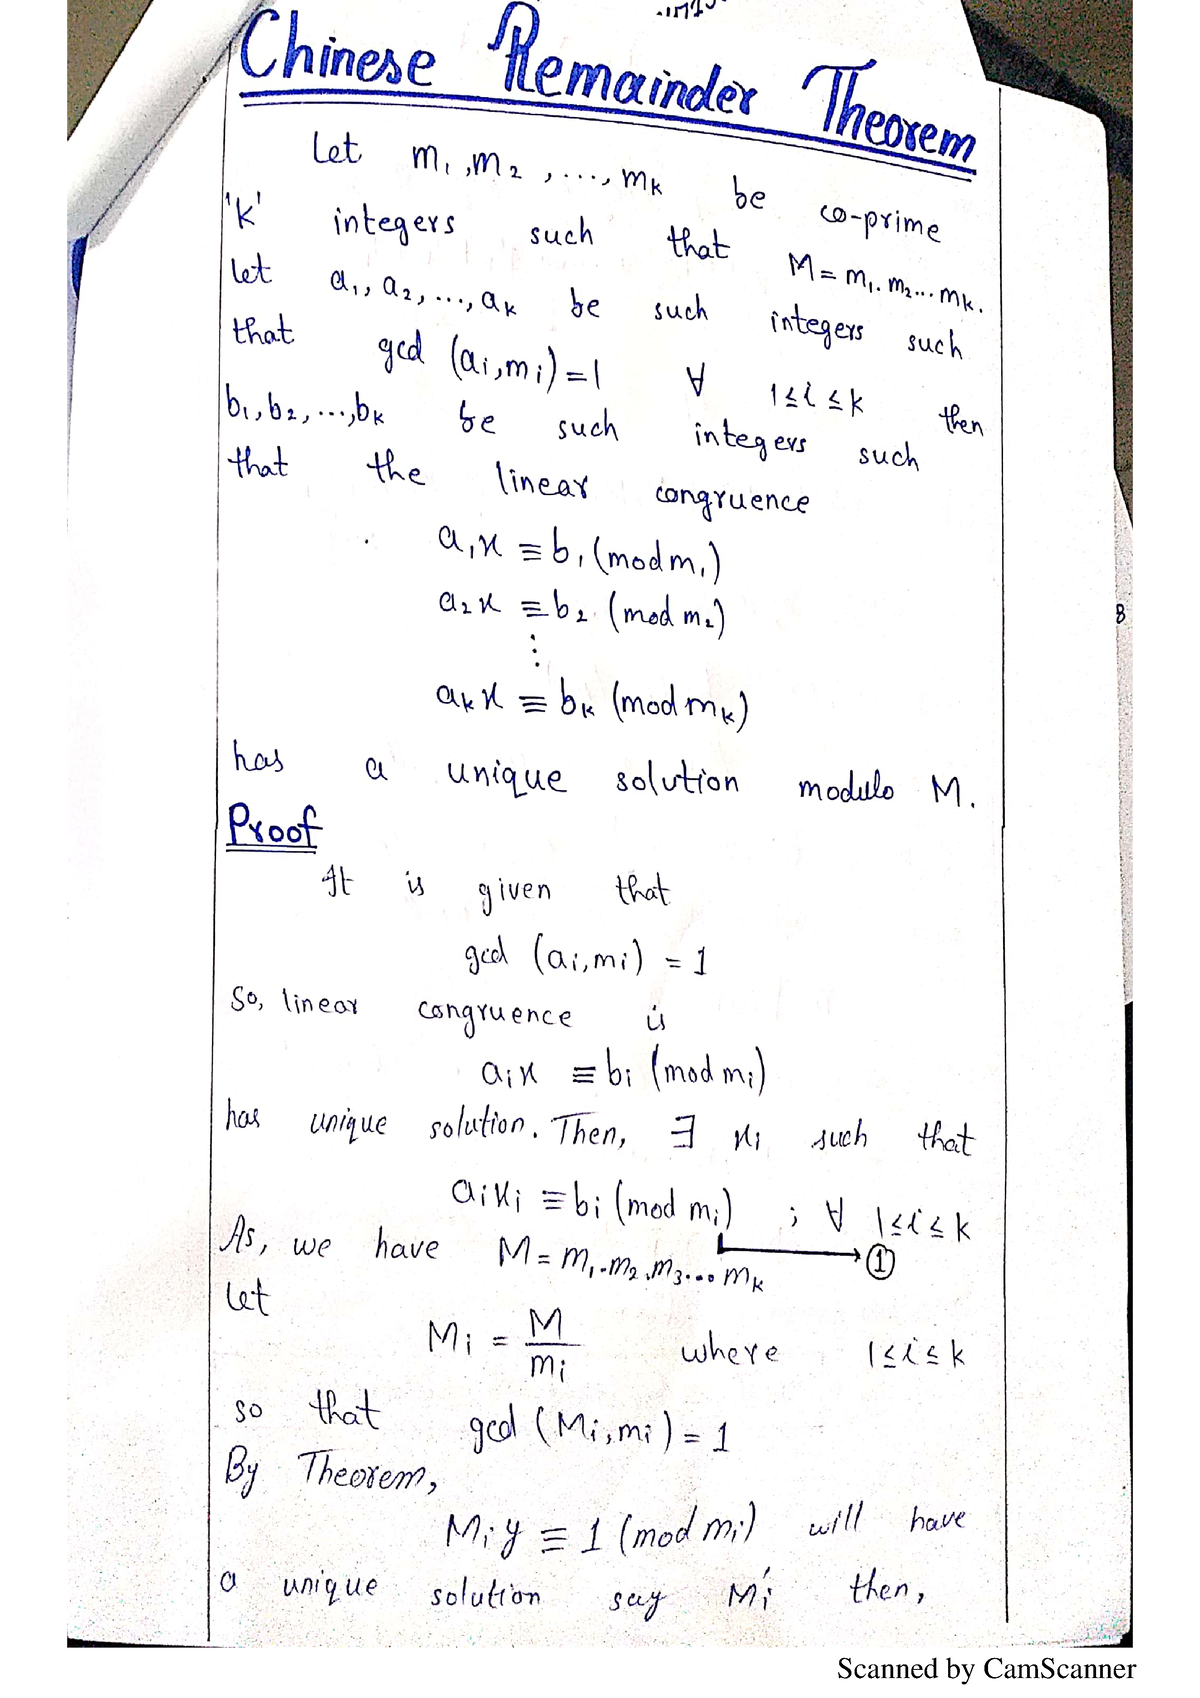 Chinese Remainder Theorem
Let m₁, m₂, ..., mₖ be co-prime
'k' integers such that M = m₁. m₂... mₖ.
let a₁, a₂, ..., aₖ be such integers such
that gcd (aᵢ, mᵢ) = 1 ∀ 1 ≤ i ≤ k then
b₁, b₂, ..., bₖ be such integers such
that the linear congruence
a₁x ≡ b₁ (mod m₁)
a₂x ≡ b₂ (mod m₂)
⋮
aₖx ≡ bₖ (mod mₖ)
has a unique solution modulo M.
Proof
It is given that
gcd (aᵢ, mᵢ) = 1
So, linear congruence is
aᵢx ≡ bᵢ (mod mᵢ)
has unique solution. Then, ∃ xᵢ such that
aᵢxᵢ ≡ bᵢ (mod mᵢ) ; ∀ 1 ≤ i ≤ k
①
As, we have M = m₁.m₂.m₃... mₖ
let
Mᵢ = M/mᵢ where 1 ≤ i ≤ k
so that gcd (Mᵢ, mᵢ) = 1
By Theorem,
Mᵢy ≡ 1 (mod mᵢ) will have
a unique solution say Mᵢ′ then,
8
Scanned by CamScanner